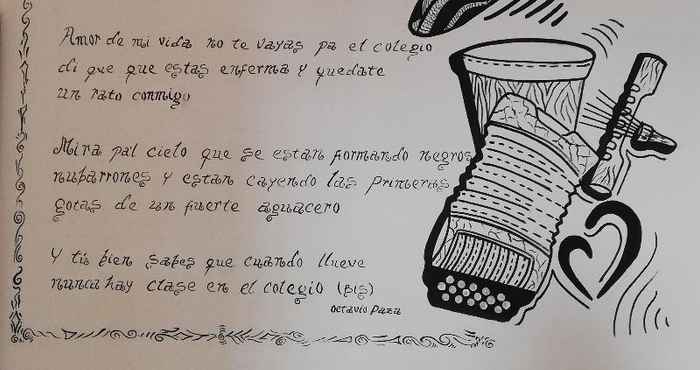 Amor de mi vida no te vayas pa el colegio
di que que estas enferma y quedate
un rato conmigo
Mira pal cielo que se estan formando negros
nubarrones y estan cayendo las primeras
gotas de un fuerte aguacero
Y tú bien sabes que cuando llueve
nunca hay clase en el colegio (bis)
Octavio Daza